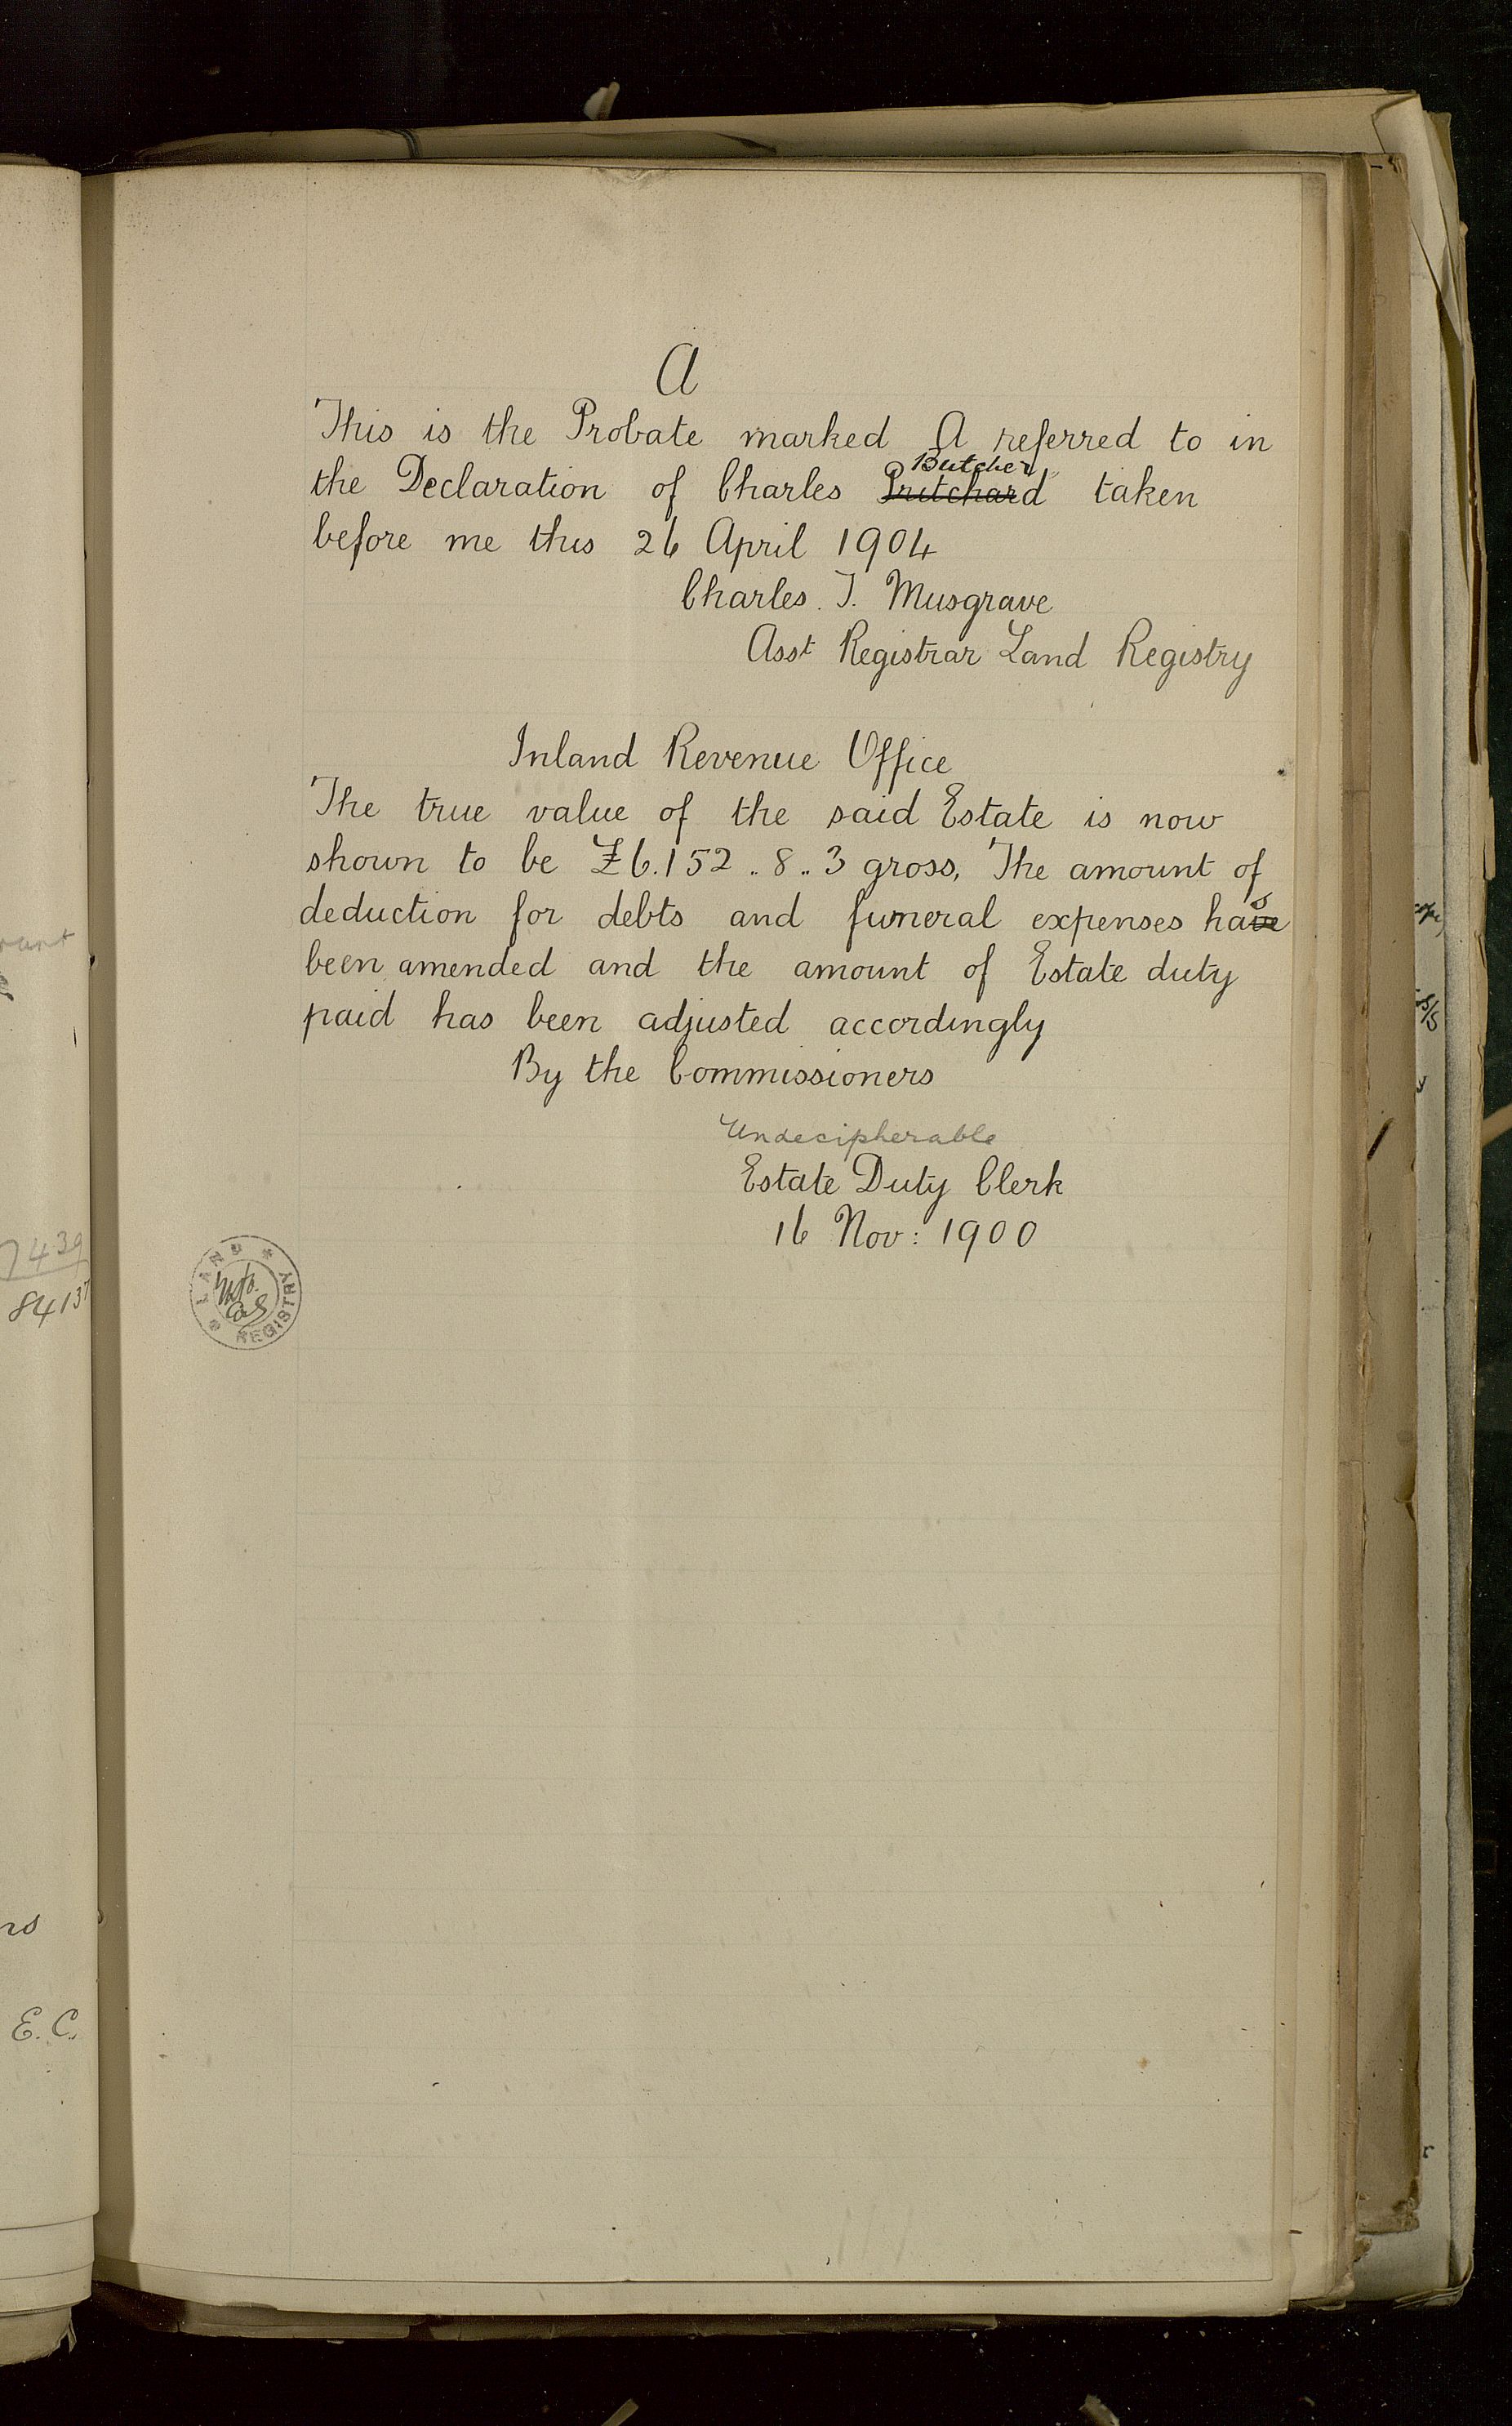 A
This is the Probate marked A referred to in
Butcher
the Declaration of Charles Pritchard taken
before me this 26 April 1904
Charles. T. Musgrave
Asst Registrar Land Registry
Inland Revenue Office
The true value of the said Estate is now
shown to be £6.152..8..3 gross, The amount of
deduction for debts and funeral expenses have s
been amended and the amount of Estate duty
paid has been adjusted accordingly
By the Commissioners
Undecipherable
Estate Duty Clerk
16 Nov: 1900
LAND REGISTRY
7439
8413
rs
E.C.